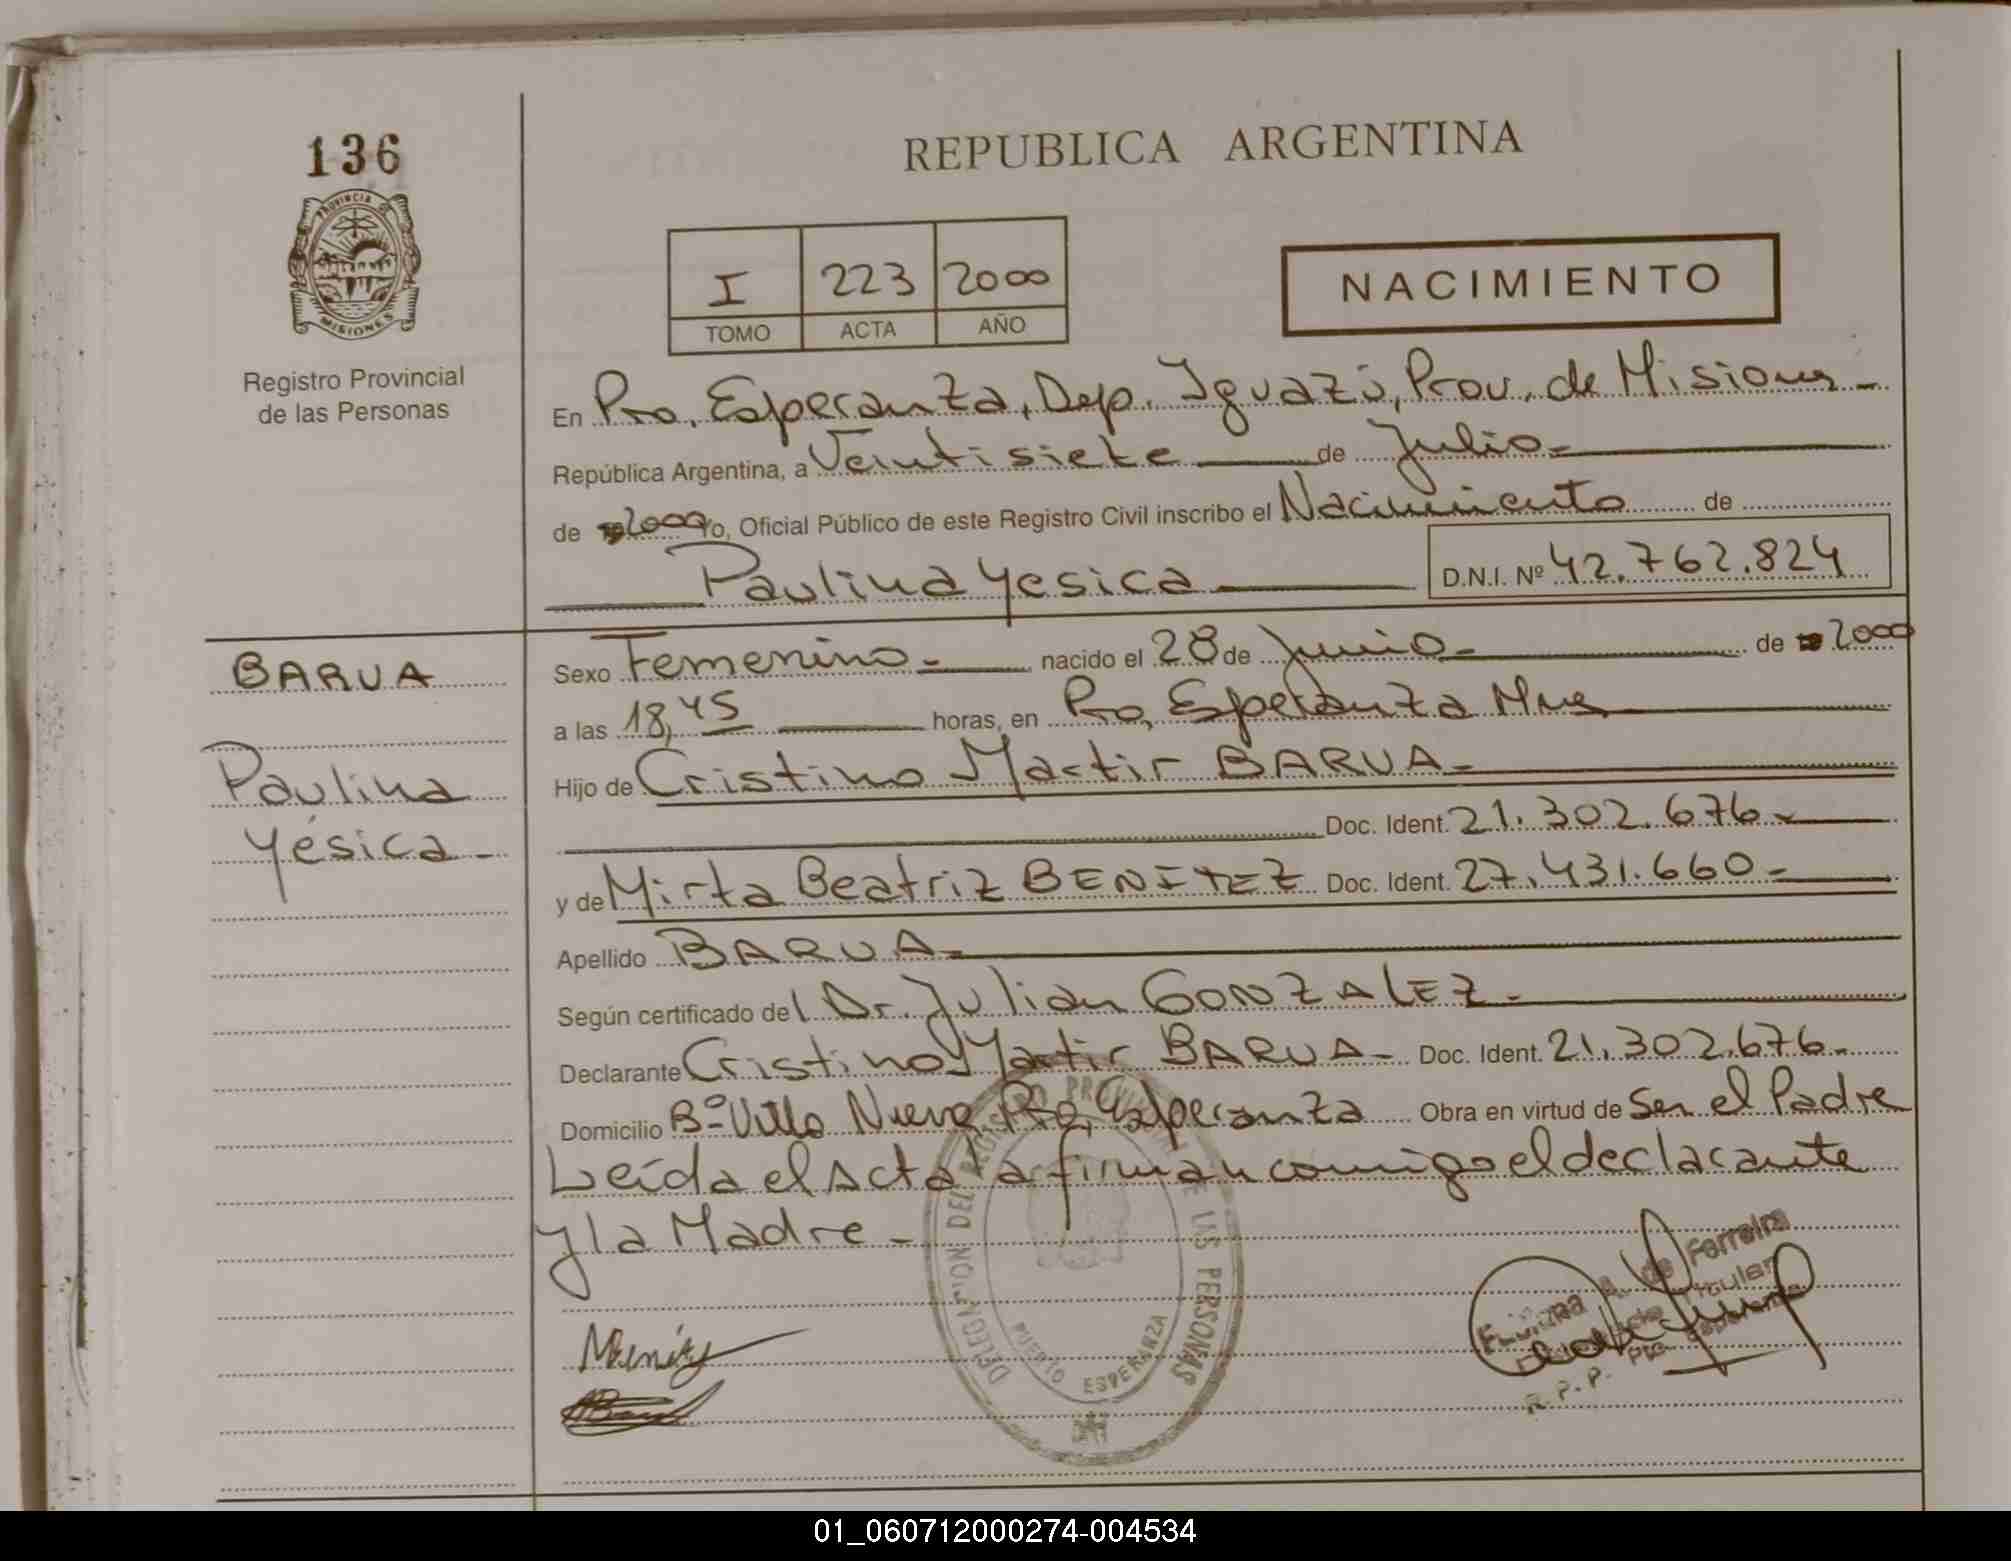 136
PROVINCIA DE
MISIONES
Registro Provincial
de las Personas
REPUBLICA ARGENTINA
I 223 2000
TOMO ACTA AÑO
NACIMIENTO
En Pto. Esperanza, Dep. Iguazú, Prov. de Misiones
República Argentina, a Veintisiete de Julio
de 2000 Yo, Oficial Público de este Registro Civil inscribo el Nacimiento de
Paulina Yesica
D.N.I. Nº 42.762.824
BARUA
Paulina
Yésica
Sexo Femenino nacido el 28 de Junio de 2000
a las 18,45 horas, en Pto. Esperanza Mnes
Hijo de Cristino Martir BARUA
Doc. Ident. 21.302.676
y de Mirta Beatriz BENITEZ Doc. Ident. 27.431.660
Apellido BARUA
Según certificado del Dr. Julian GONZALEZ
Declarante Cristino Martir BARUA Doc. Ident. 21.302.676
Domicilio Bº Villa Nueva Pto. Esperanza Obra en virtud de Ser el Padre
Leída el Acta la firman conmigo el declarante
y la Madre
DELEGACION DEL REGISTRO PROVINCIAL DE LAS PERSONAS
PUERTO ESPERANZA
de Ferreira
Titular
R.P.P.
01_060712000274-004534